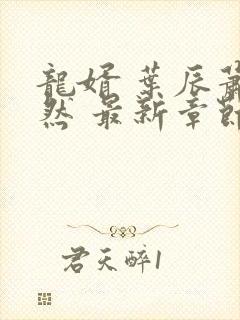 龍婿 葉辰蕭
然 最新章節
君天醉1